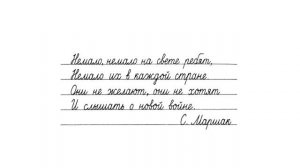 Немало, немало на свете ребят,
Немало их в каждой стране.
Они не желают, они не хотят
И слышать о новой войне.
С. Маршак